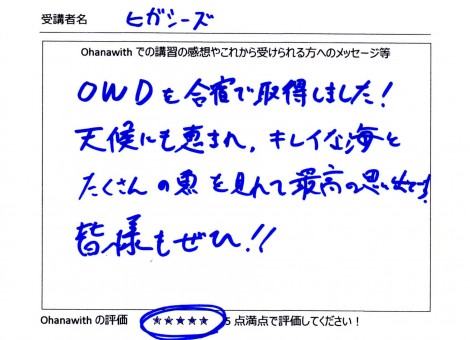 受講者名 ヒガシーズ
Ohanawith での講習の感想やこれから受けられる方へのメッセージ等
OWDを合宿で取得しました!
天候にも恵まれ、キレイな海と
たくさんの魚を見れて最高の思い出です!
皆様もぜひ!!
Ohanawith の評価 ★★★★★ 5 点満点で評価してください!